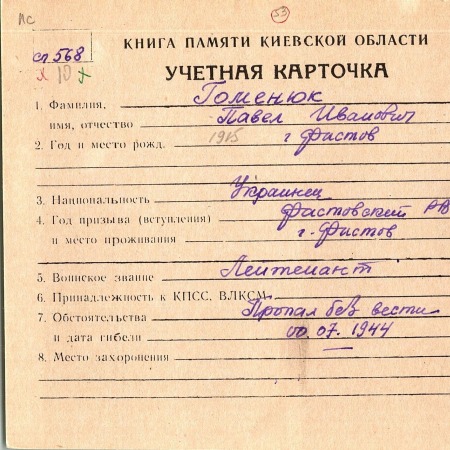 ПС
53
сп 568
х 10 х
КНИГА ПАМЯТИ КИЕВСКОЙ ОБЛАСТИ
УЧЕТНАЯ КАРТОЧКА
1. Фамилия, Гоменюк
имя, отчество Павел Иванович
2. Год и место рожд. 1915 г Фастов
3. Национальность Украинец
4. Год призыва (вступления) Фастовский РВ
и место проживания г. Фастов
5. Воинское звание Лейтенант
6. Принадлежность к КПСС, ВЛКСМ
7. Обстоятельства Пропал без вести
и дата гибели 00.07.1944
8. Место захоронения